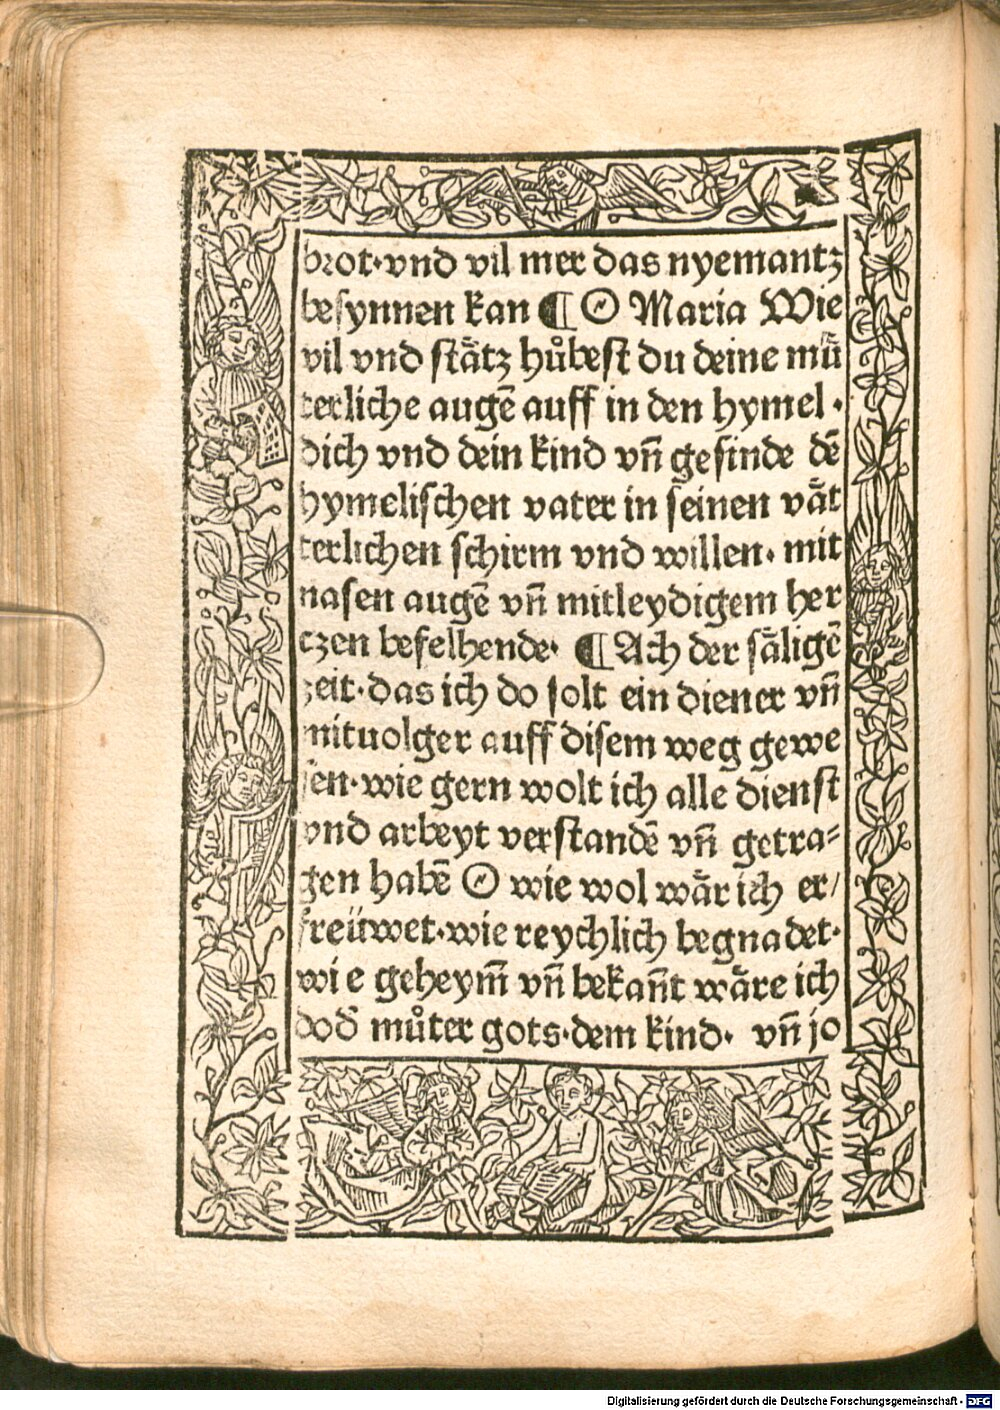 brot·vnd vil mer das nyemantz
besynnen kan ¶ O Maria Wie
vil vnd stätz hůbest du deine mů
terliche augē auff in den hymel·
dich vnd dein kind vn̄ gesinde dē
hymelischen vater in seinen vät
terlichen schirm vnd willen· mit
nasen augē vn̄ mitleydigem her
czen befelhende· ¶ Ach der säligē
zeit·das ich do solt ein diener vn̄
mituolger auff disem weg gewe
sen·wie gern wolt ich alle dienst
vnd arbeyt verstandē vn̄ getra⸗
gen habē O wie wol wär ich er/
freüwet·wie reychlich begnadet·
wie geheym̄ vn̄ bekan̄t wäre ich
dod̄ můter gots·dem kind· vn̄ jo
Digitalisierung gefördert durch die Deutsche Forschungsgemeinschaft - DFG